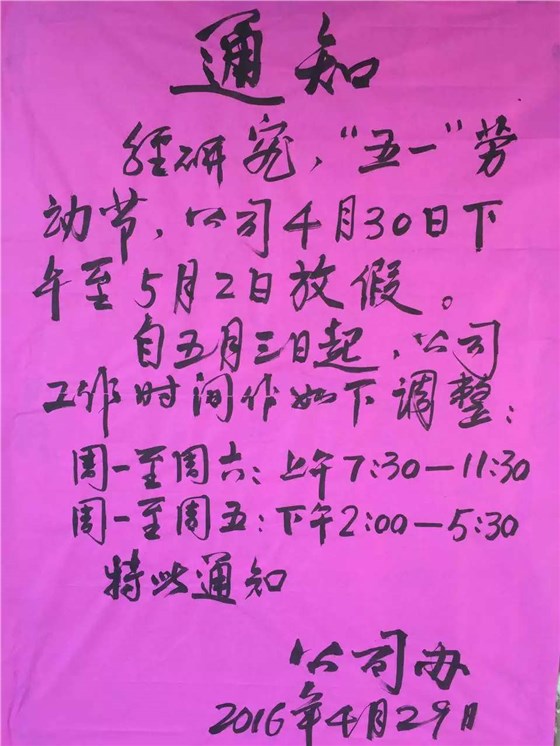 通知
经研究，“五一”劳
动节，公司4月30日下
午至5月2日放假。
自五月三日起，公司
工作时间作如下调整：
周一至周六：上午7:30—11:30
周一至周五：下午2:00—5:30
特此通知
公司办
2016年4月29日